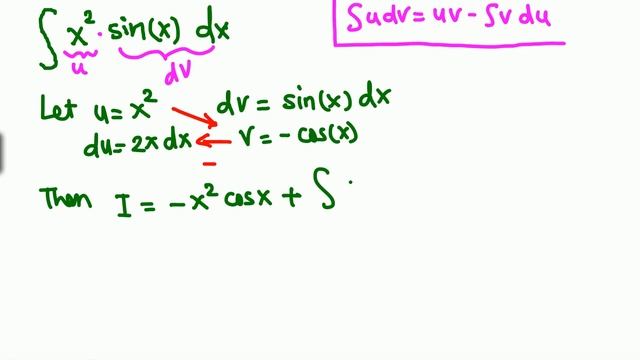 ∫ x² · sin(x) dx
∫u dv = uv - ∫v du
u
dv
Let u = x² dv = sin(x) dx
du = 2x dx v = -cos(x)
−
Then I = -x² cosx + ∫